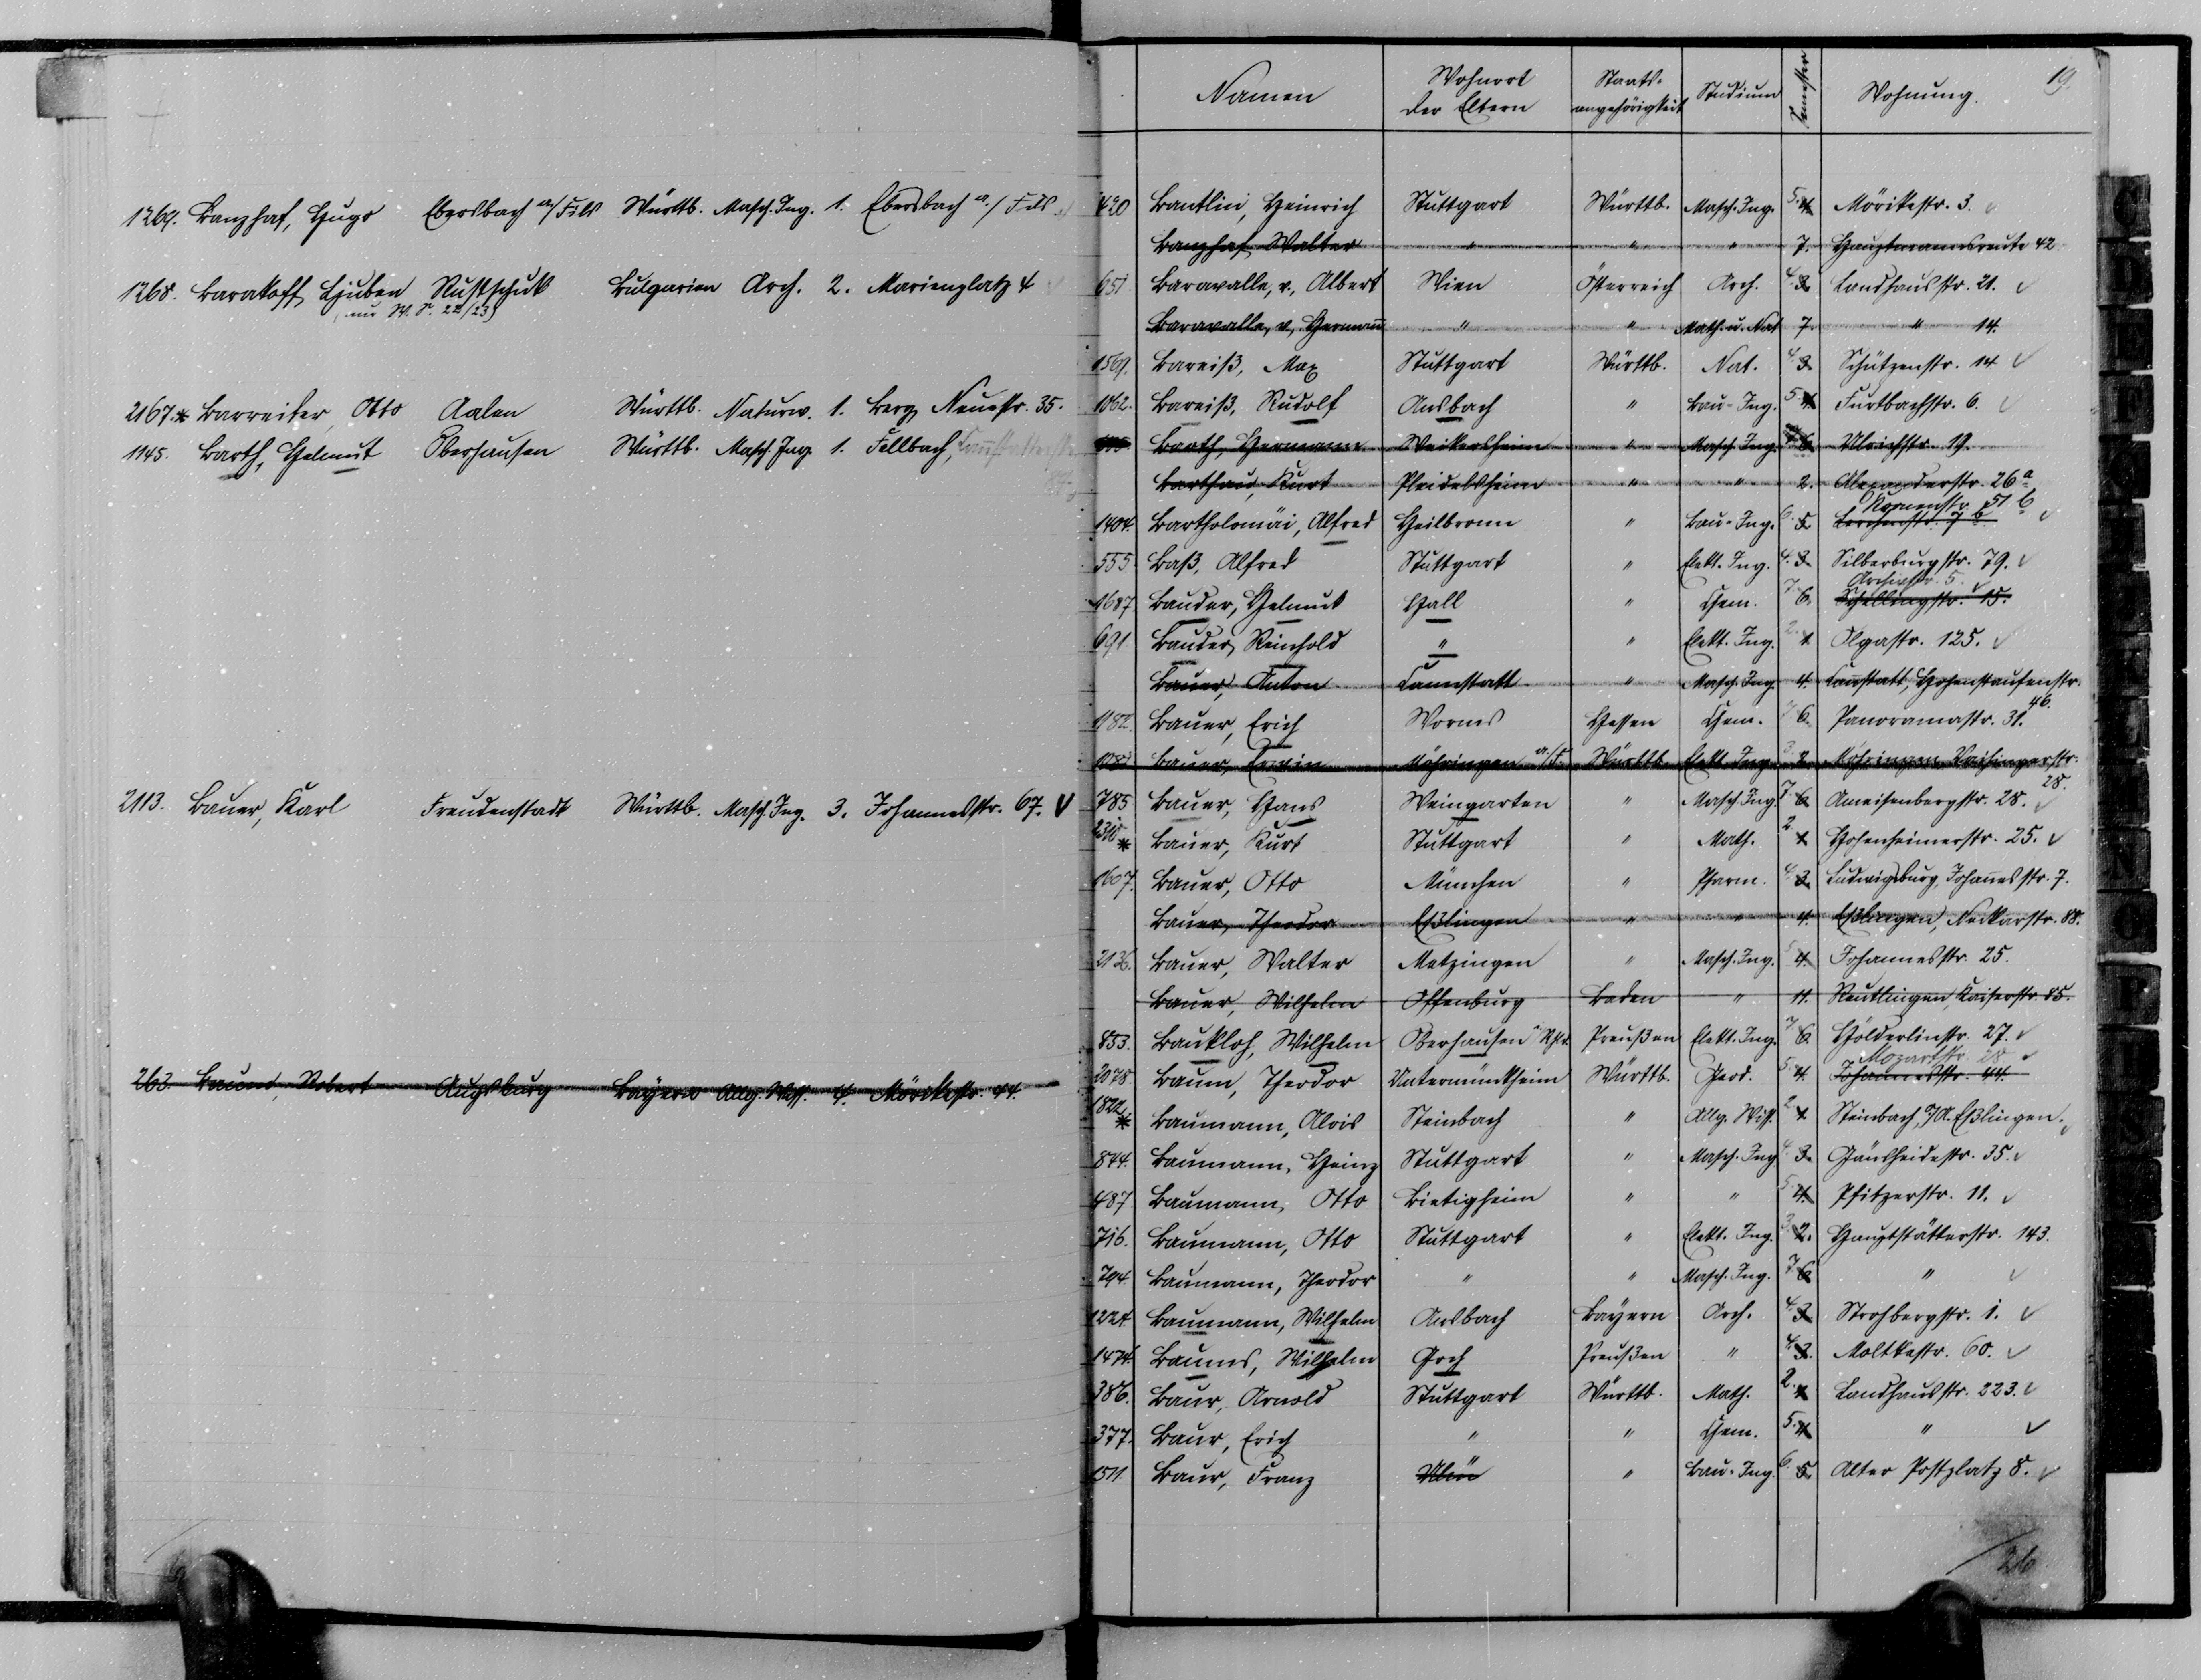 1269. Banzhaf, Hugo Ebersbach a/Fils Württb. Masch. Ing. 1. Ebersbach a./Fils
1268. Barakoff, Ljuben Rustschuk Bulgarien Arch. 2. Marienplatz 4
(nur W. S. 22/23)
2167.* Barreiter, Otto Aalen Württb. Naturw. 1. Berg, Neuestr. 35.
1145. Barth, Helmut Oberhausen Württb. Masch. Ing. 1. Fellbach, Cannstatterstr.
2113. Bauer, Karl Freudenstadt Württb. Masch. Ing. 3. Johannesstr. 67. ✓
263. Baum, Robert Augsburg Bayern Allg. Wiss. 4. Mörikestr. 44.
19.
Namen Wohnort der Eltern Staats-angehörigkeit Studium Semester Wohnung.
490 Bantlin, Heinrich Stuttgart Württb. Masch. Ing. 5. 4. Mörikestr. 3.
Banzhaf, Walter " " " 7. Hauptmannsreute 42
651 Baravalle, v., Albert Wien Österreich Arch. 4. 3. Landhausstr. 21. ✓
Baravalle, v., Hermann " " Math. u. Nat. 7. " 14.
1569. Bareiß, Max Stuttgart Württb. Nat. 4. 3. Schützenstr. 14 ✓
1062. Bareiß, Rudolf Ansbach " Bau-Ing. 5. 4. Furtbachstr. 6. ✓
Barth, Hermann Weikersheim " Masch. Ing. 6. Ulrichstr. 19.
Barthau, Kurt Pleidelsheim " " 2. Alexanderstr. 26a
1404. Bartholomäi, Alfred Heilbronn " Bau-Ing. 6. 5. Lerchenstr. 7b Kronenstr. 51 b ✓
555. Baß, Alfred Stuttgart " Elekt. Ing. 4. 3. Silberburgstr. 79. ✓
1687 Bauder, Helmut Hall " Chem. 7. 6. Schellingstr. 15. Archivstr. 5. ✓
691 Bauder, Reinhold " " Elekt. Ing. 2. 1. Olgastr. 125. ✓
Bauer, Anton Cannstatt " Masch. Ing. 4. Cannstatt, Hohenstaufenstr. 46.
1182. Bauer, Erich Worms Hessen Chem. 7. 6. Panoramastr. 31.
1081 Bauer, Erwin Möhringen a/F. Württb. Elekt. Ing. 3. 2. Möhringen, Vaihingerstr. 28.
785 Bauer, Hans Weingarten " Masch. Ing. 7. 6. Ameisenbergstr. 28. ✓
2318* Bauer, Kurt Stuttgart " Math. 2. 1. Hohenheimerstr. 25. ✓
1607. Bauer, Otto München " Pharm. 4. 3. Ludwigsburg, Johannesstr. 7.
Bauer, Theodor Eßlingen " " 4. Eßlingen, Neckarstr. 88.
2136. Bauer, Walter Metzingen " Masch. Ing. 5. 4. Johannesstr. 25.
Bauer, Wilhelm Offenburg Baden " 11. Reutlingen, Kaiserstr. 85.
853. Baukloh, Wilhelm Oberhausen Preußen Elekt. Ing. 7. 6. Hölderlinstr. 27. ✓
2078. Baum, Theodor Untermünkheim Württb. Geod. 5. 4. Johannesstr. 44. Mozartstr. 28 ✓
1822.* Baumann, Alois Steinbach " Allg. Wiss. 2. 1. Steinbach, O/A. Eßlingen. ✓
844. Baumann, Heinz Stuttgart " Masch. Ing. 4. 3. Gänsheidestr. 35. ✓
487 Baumann, Otto Bietigheim " " 5. 4. Pfitzerstr. 11. ✓
716. Baumann, Otto Stuttgart " Elekt. Ing. 3. 2. Hauptstätterstr. 143.
794. Baumann, Theodor " " Masch. Ing. 7. 6. " ✓
1224. Baumann, Wilhelm Ansbach Bayern Arch. 4. 3. Strohbergstr. 1. ✓
1474. Baums, Wilhelm Goch Preußen " 4. 3. Moltkestr. 60. ✓
386. Baur, Arnold Stuttgart Württb. Math. 2. 1. Landhausstr. 223. ✓
377. Baur, Erich " " Chem. 5. 4. " ✓
1511. Baur, Franz Ulm " Bau-Ing. 6. 5. Alter Postplatz 8. ✓
26